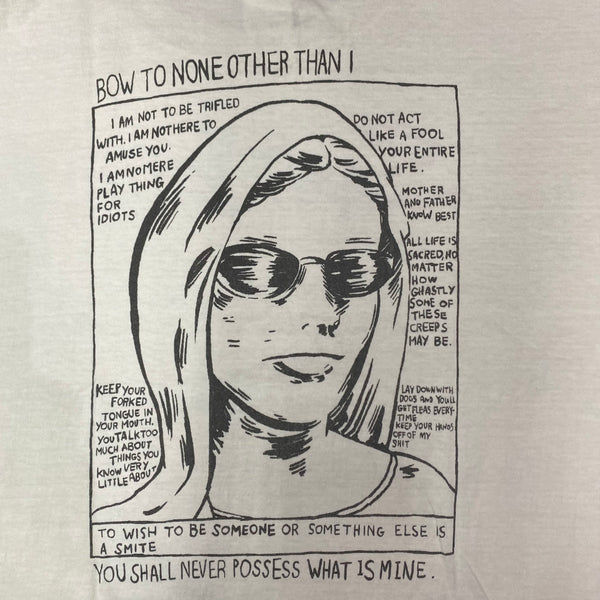 BOW TO NONE OTHER THAN I
I AM NOT TO BE TRIFLED
WITH. I AM NOT HERE TO
AMUSE YOU.
I AM NO MERE
PLAY THING
FOR
IDIOTS
DO NOT ACT
LIKE A FOOL
YOUR ENTIRE
LIFE.
MOTHER
AND FATHER
KNOW BEST
ALL LIFE IS
SACRED, NO
MATTER
HOW
GHASTLY
SOME OF
THESE
CREEPS
MAY BE.
KEEP YOUR
FORKED
TONGUE IN
YOUR MOUTH.
YOU TALK TOO
MUCH ABOUT
THINGS YOU
KNOW VERY
LITTLE ABOUT
LAY DOWN WITH
DOGS AND YOU'LL
GET FLEAS EVERY-
TIME
KEEP YOUR HANDS
OFF OF MY
SHIT
TO WISH TO BE SOMEONE OR SOMETHING ELSE IS
A SMITE
YOU SHALL NEVER POSSESS WHAT IS MINE.